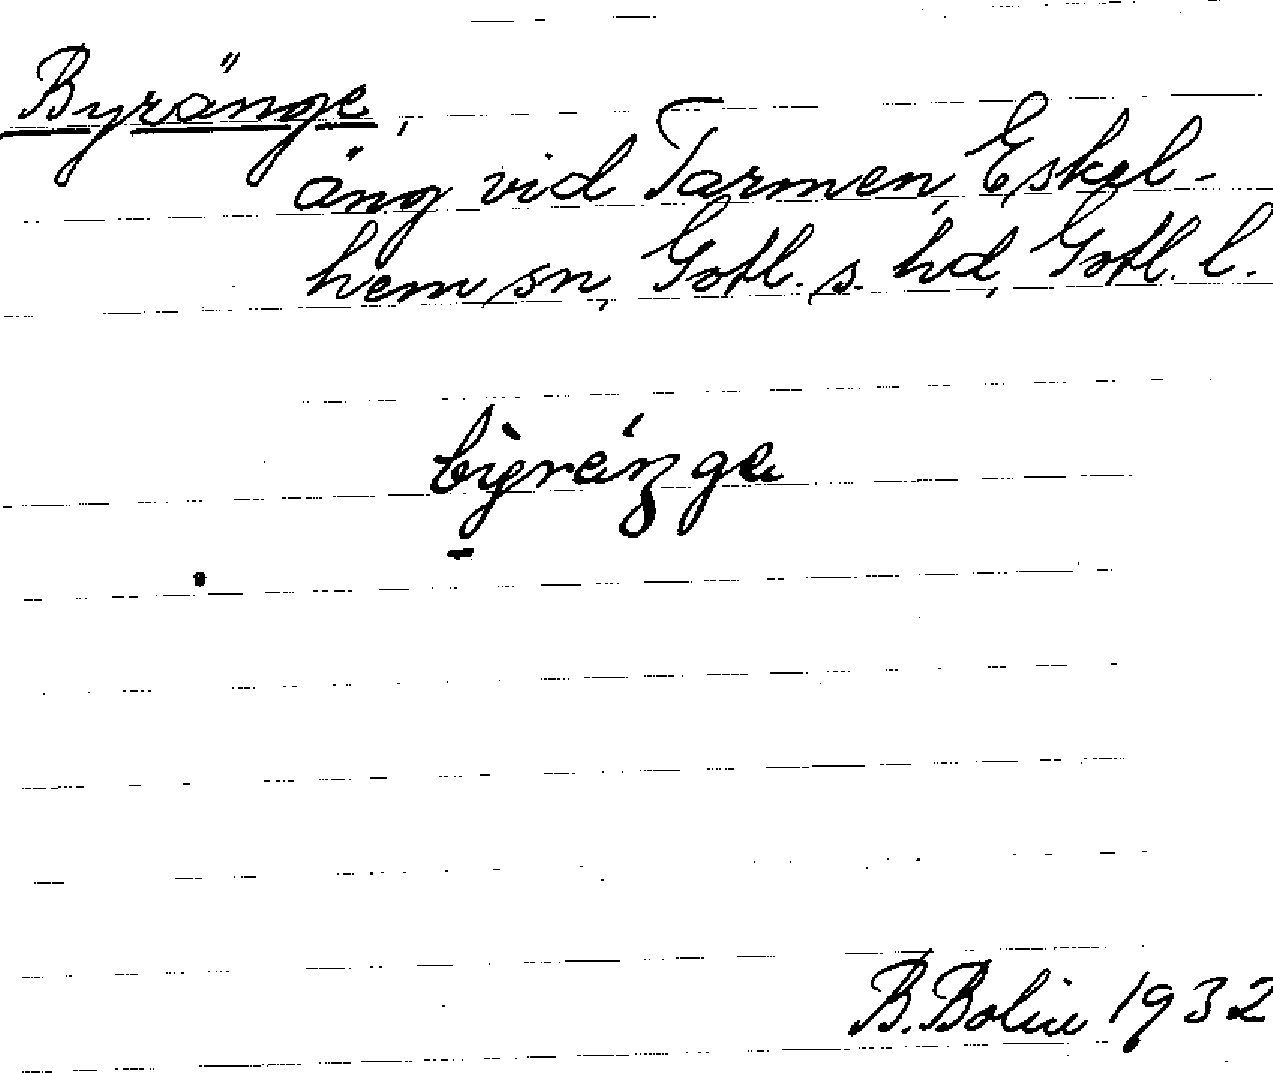 Byränge,
äng vid Tarmen, Eskel-
hem sn, Gotl. s. hd, Gotl. l.
bỳränga
B. Bolin 1932